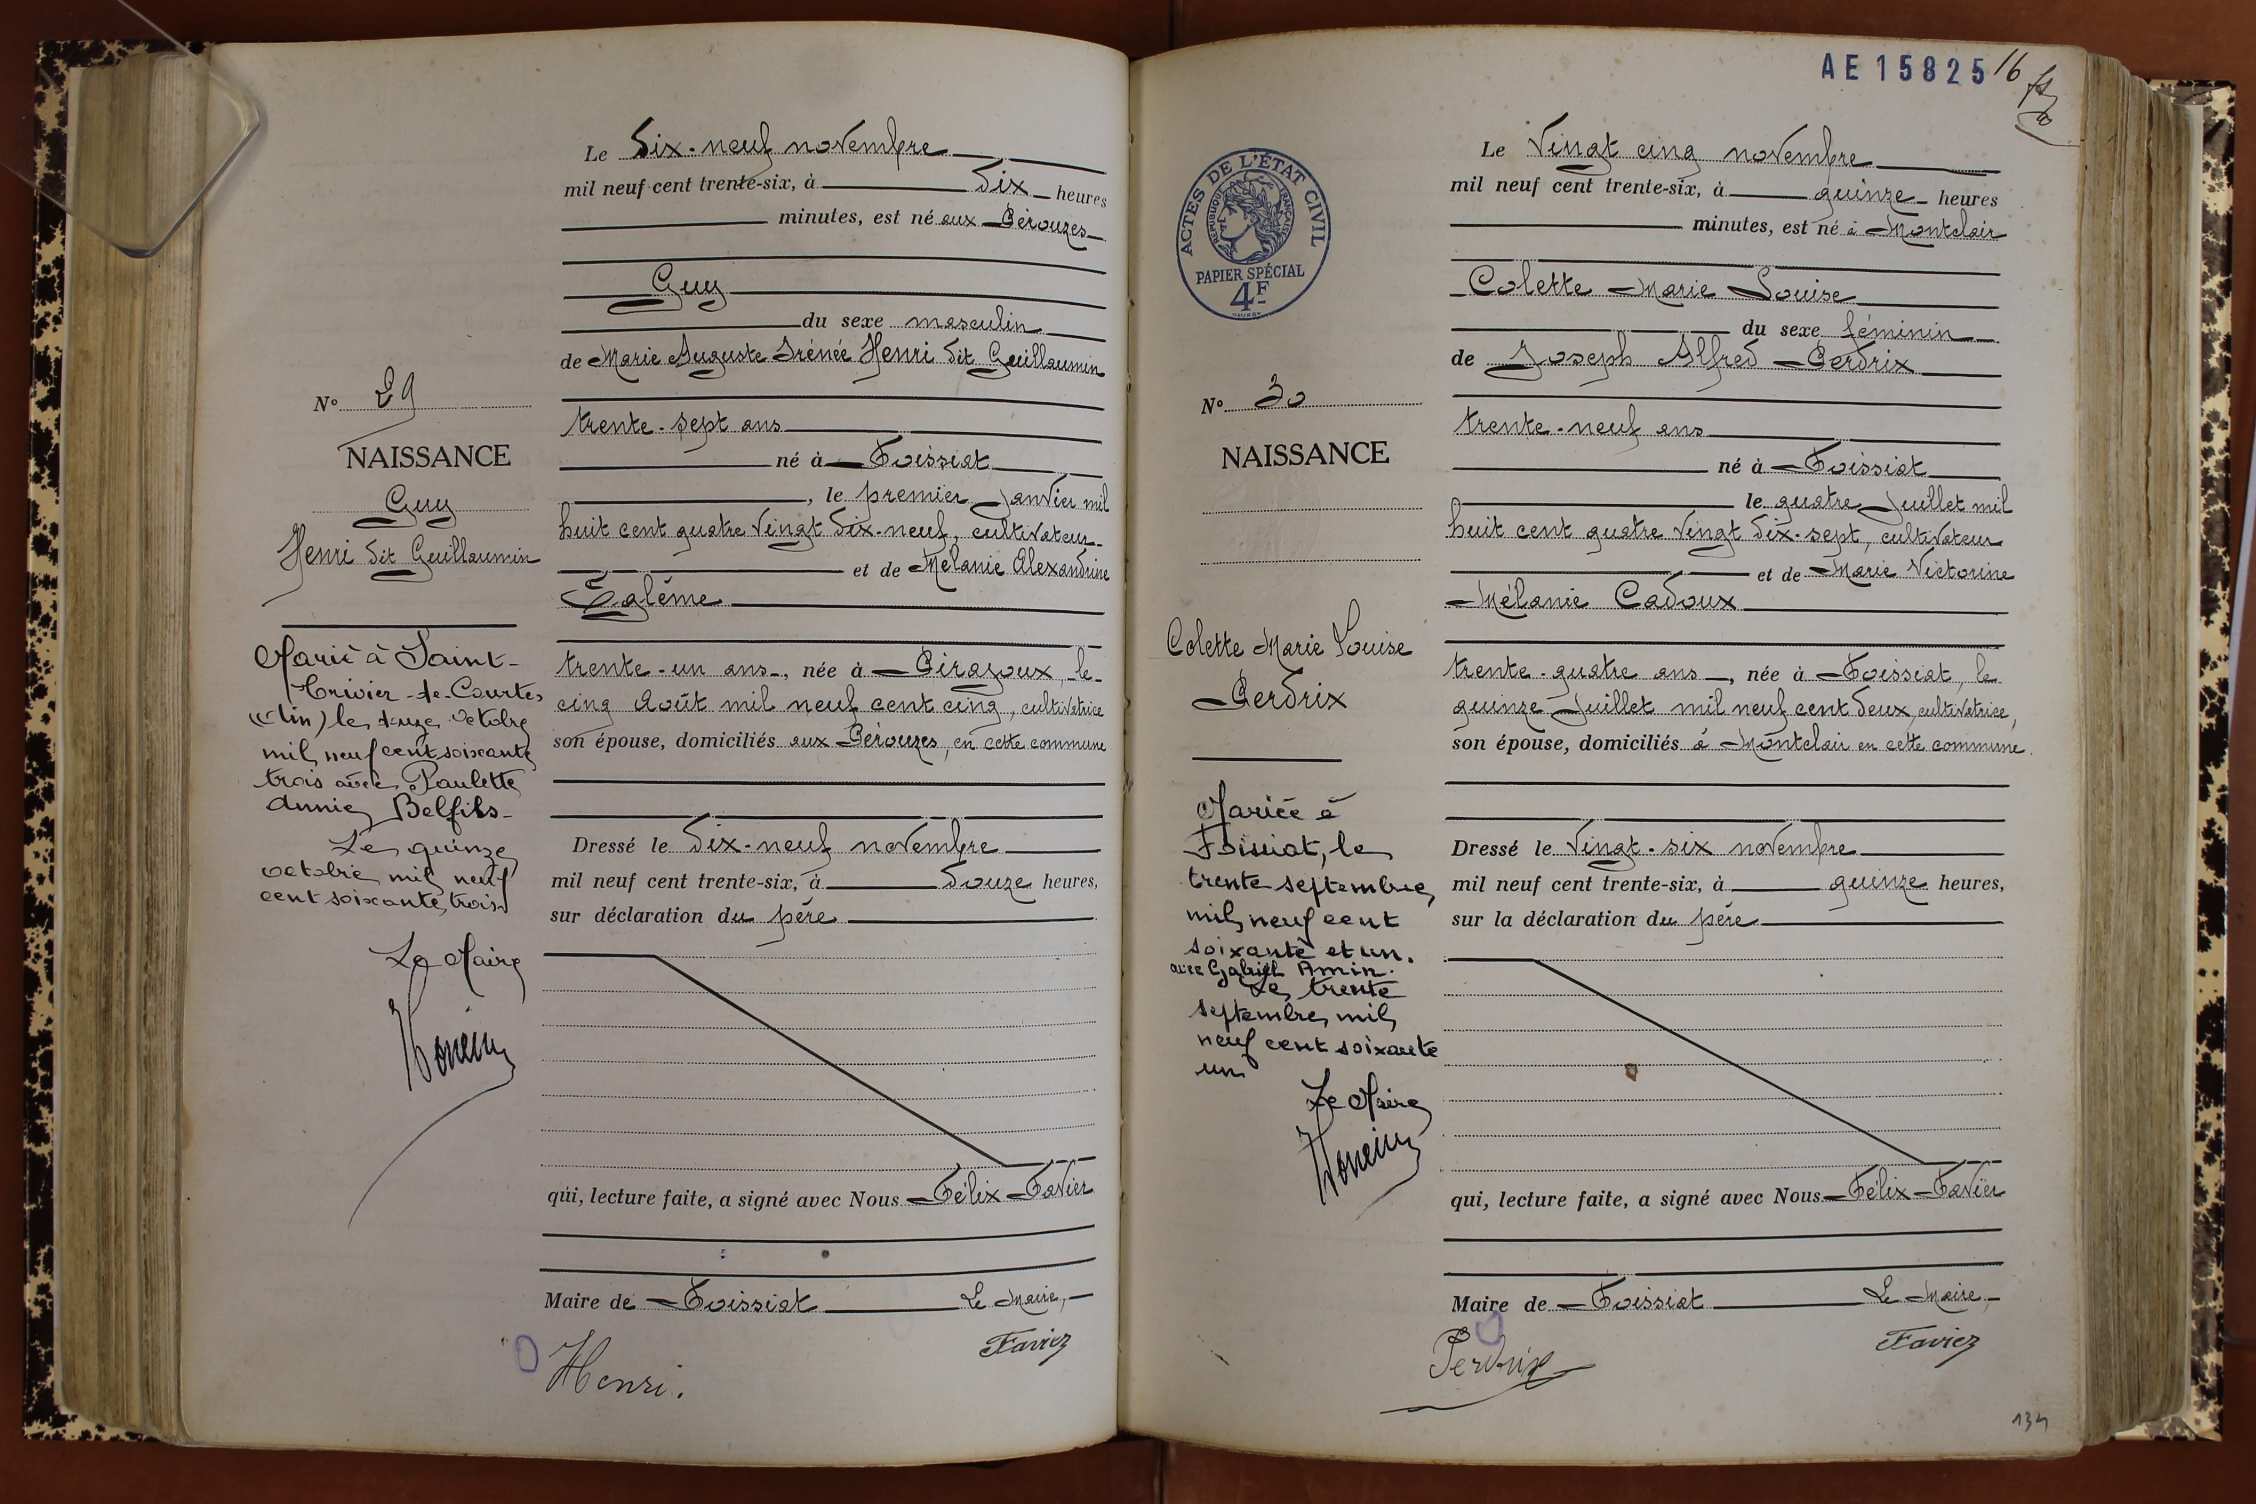 Le Dix-neuf novembre
mil neuf cent trente-six, à Dix heures
minutes, est né aux Pérouzes
Guy
du sexe masculin
de Marie Auguste Irénée Henri dit Guillaumin
N° 29
trente-sept ans
NAISSANCE
né à Foissiat
Guy
, le premier Janvier mil
Henri dit Guillaumin
huit cent quatre vingt dix-neuf, cultivateur
et de Mélanie Alexandrine
Marié à Saint-
Trivier-de-Courtes
(Ain) le douze octobre
mil neuf cent soixante
trois avec Paulette
Annie Belfils-
Le quinze
octobre mil neuf
cent soixante trois
Le Maire
trente-un ans, née à Pirajoux, le
cinq Août mil neuf cent cinq, cultivatrice
son épouse, domiciliés aux Pérouzes, en cette commune
Dressé le Dix-neuf novembre
mil neuf cent trente-six, à Douze heures,
sur déclaration du père
qui, lecture faite, a signé avec Nous Félix Favier
Maire de Foissiat Le Maire,
Henri.
Favier
AE15825
16
ACTES DE L'ÉTAT CIVIL
RÉPUBLIQUE FRANÇAISE
PAPIER SPÉCIAL
4F
Le Vingt cinq novembre
mil neuf cent trente-six, à quinze heures
minutes, est né à Montclair
Colette Marie Louise
du sexe féminin
de Joseph Alfred Perdrix
N° 30
trente-neuf ans
NAISSANCE
né à Foissiat
le quatre Juillet mil
huit cent quatre vingt dix-sept, cultivateur
et de Marie Victorine
Mélanie Cadoux
Colette Marie Louise
Perdrix
trente-quatre ans, née à Foissiat, le
quinze Juillet mil neuf cent deux, cultivatrice,
son épouse, domiciliés à Montclair en cette commune.
Mariée à
Foissiat, le
trente septembre
mil neuf cent
soixante et un.
avec Gabriel Amin.
Le trente
septembre mil
neuf cent soixante
un
Le Maire
Dressé le Vingt-six novembre
mil neuf cent trente-six, à quinze heures,
sur la déclaration du père
qui, lecture faite, a signé avec Nous Félix Favier
Maire de Foissiat Le Maire,
Perdrix
Favier
134